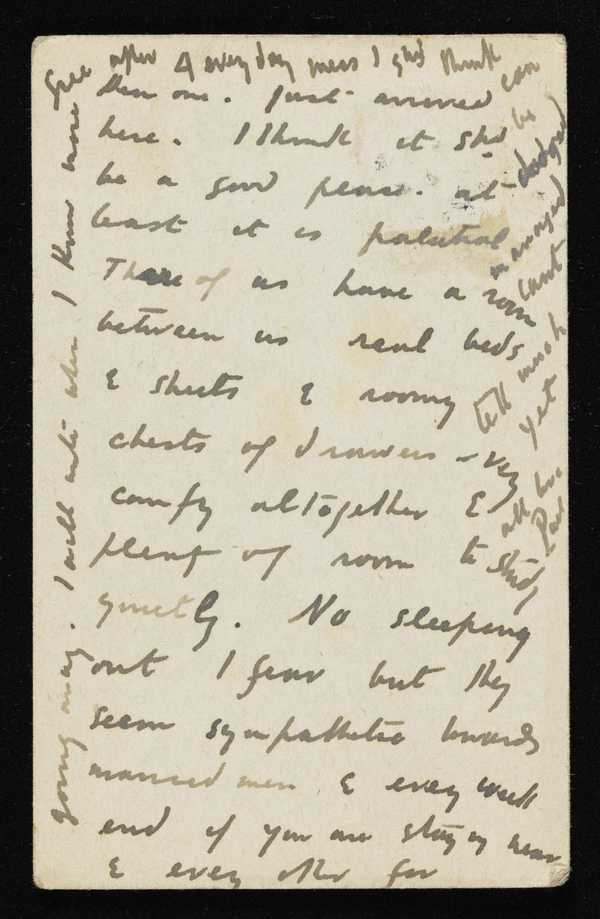 then one. Just arrived
here. I think it shd
be a good place. at
least it is palatial
Three of us have a room
between us real beds
& sheets & roomy
chests of drawers – vy
comfy altogether &
plenty of room to study
quietly. No sleeping
out I fear but they
seem sympathetic towards
married men & every week
end if you are staying near
& every other for
going away. I will write when I know more
free after 4 every day mess I shd think
can
be
dodged
managed
cant
tell much
yet
all love
Paul